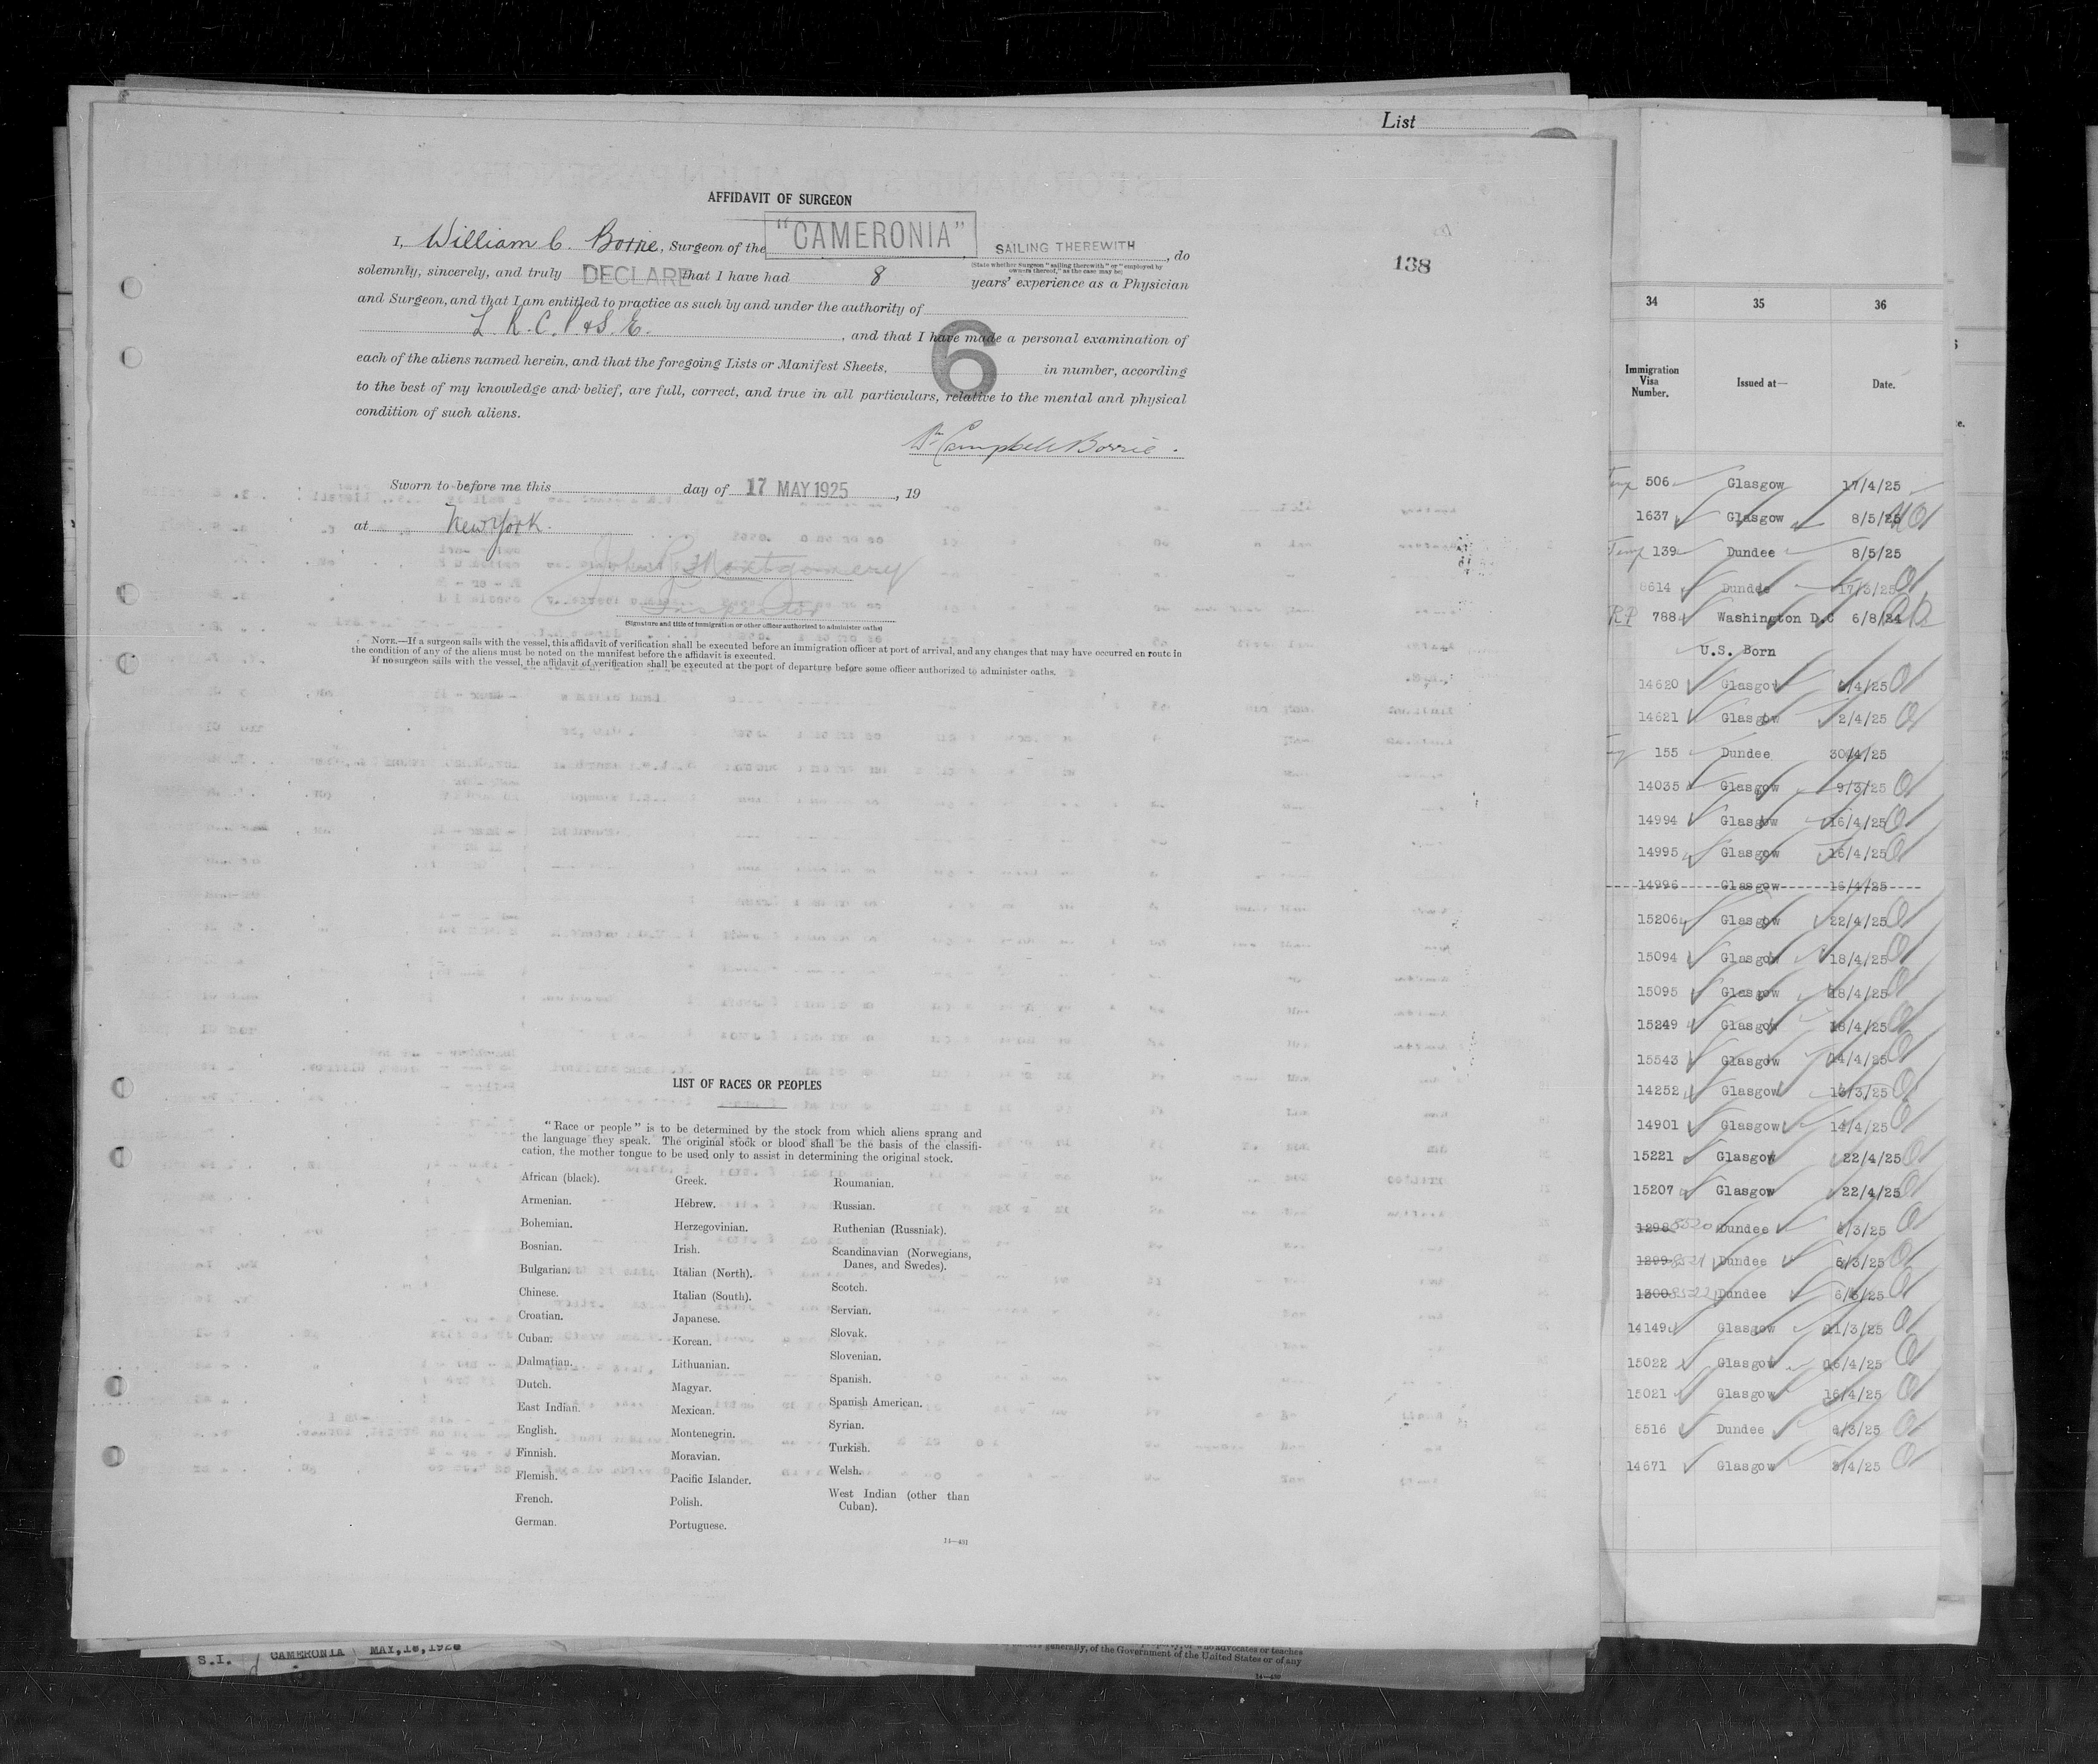 List
AFFIDAVIT OF SURGEON
I, William C. Borrie, Surgeon of the "CAMERONIA" SAILING THEREWITH, do
(State whether Surgeon "sailing therewith" or "employed by
owners thereof," as the case may be)
138
solemnly, sincerely, and truly DECLARE that I have had 8 years' experience as a Physician
and Surgeon, and that I am entitled to practice as such by and under the authority of
L.R.C.P. & S.E., and that I have made a personal examination of
each of the aliens named herein, and that the foregoing Lists or Manifest Sheets, 6 in number, according
to the best of my knowledge and belief, are full, correct, and true in all particulars, relative to the mental and physical
condition of such aliens.
Wm Campbell Borrie.
Sworn to before me this day of 17 MAY 1925, 19
at New York.
John R. Montgomery
Inspector
(Signature and title of immigration or other officer authorized to administer oaths)
NOTE.—If a surgeon sails with the vessel, this affidavit of verification shall be executed before an immigration officer at port of arrival, and any changes that may have occurred en route in
the condition of any of the aliens must be noted on the manifest before the affidavit is executed.
If no surgeon sails with the vessel, the affidavit of verification shall be executed at the port of departure before some officer authorized to administer oaths.
LIST OF RACES OR PEOPLES
"Race or people" is to be determined by the stock from which aliens sprang and
the language they speak. The original stock or blood shall be the basis of the classifi-
cation, the mother tongue to be used only to assist in determining the original stock.
African (black).
Armenian.
Bohemian.
Bosnian.
Bulgarian.
Chinese.
Croatian.
Cuban.
Dalmatian.
Dutch.
East Indian.
English.
Finnish.
Flemish.
French.
German.
Greek.
Hebrew.
Herzegovinian.
Irish.
Italian (North).
Italian (South).
Japanese.
Korean.
Lithuanian.
Magyar.
Mexican.
Montenegrin.
Moravian.
Pacific Islander.
Polish.
Portuguese.
Roumanian.
Russian.
Ruthenian (Russniak).
Scandinavian (Norwegians,
Danes, and Swedes).
Scotch.
Servian.
Slovak.
Slovenian.
Spanish.
Spanish American.
Syrian.
Turkish.
Welsh.
West Indian (other than
Cuban).
14—491
34 35 36
Immigration
Visa
Number.
Issued at—
Date.
Temp 506 Glasgow 17/4/25
1637 Glasgow 8/5/25
Temp 139 Dundee 8/5/25
8614 Dundee 17/3/25
RP 788 Washington D.C 6/8/24
U.S. Born
14620 Glasgow /4/25
14621 Glasgow 2/4/25
155 Dundee 30/4/25
14035 Glasgow 9/3/25
14994 Glasgow 16/4/25
14995 Glasgow 16/4/25
14996 Glasgow 16/4/25
15206 Glasgow 22/4/25
15094 Glasgow 18/4/25
15095 Glasgow 18/4/25
15249 Glasgow 18/4/25
15543 Glasgow 14/4/25
14252 Glasgow 13/3/25
14901 Glasgow 14/4/25
15221 Glasgow 22/4/25
15207 Glasgow 22/4/25
1298 8520 Dundee 6/3/25
1299 8521 Dundee 6/3/25
1300 8522 Dundee 6/3/25
14149 Glasgow 11/3/25
15022 Glasgow 16/4/25
15021 Glasgow 16/4/25
8516 Dundee 6/3/25
14671 Glasgow 3/4/25
S.I. CAMERONIA MAY,16,1925
who advocates or teaches
generally, of the Government of the United States or of any
14—450